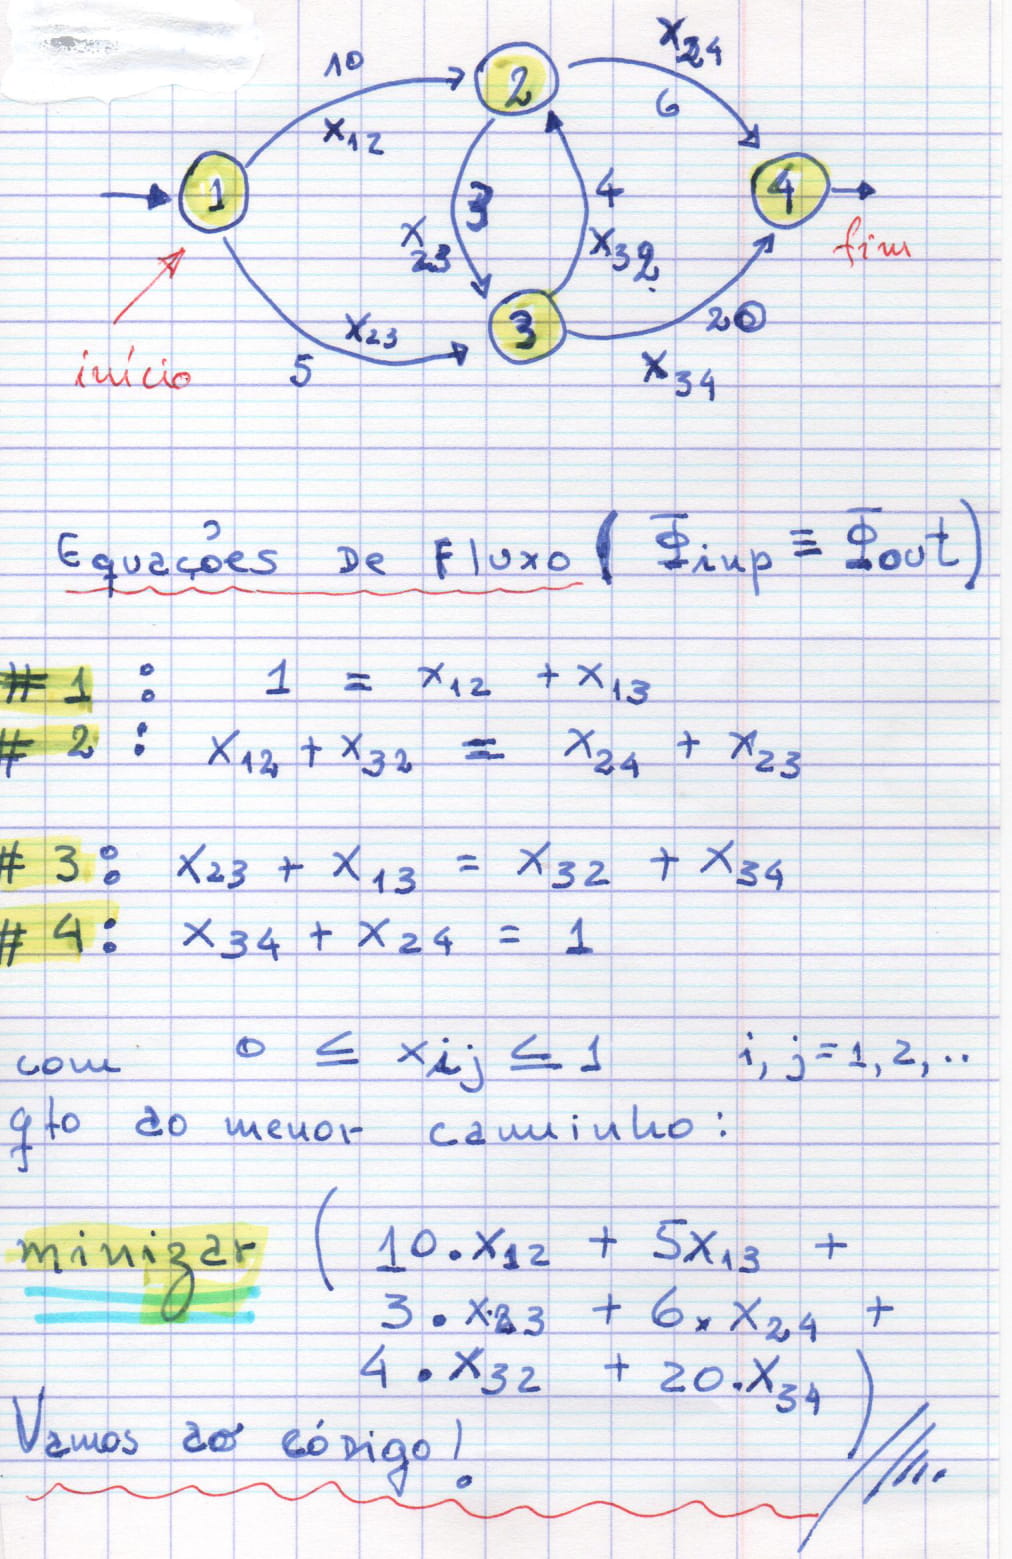 10
x12
x24
6
1
2
3
x23
4
x32
4
fim
início
x23
5
3
20
x34
Equações De Fluxo ( Φinp ≡ Φout)
#1 : 1 = x12 + x13
# 2 : x12 + x32 = x24 + x23
# 3: x23 + x13 = x32 + x34
# 4: x34 + x24 = 1
com 0 ≤ xij ≤ 1 i, j = 1, 2, ..
qto ao menor caminho:
minizar ( 10.x12 + 5x13 +
3.x23 + 6.x24 +
4.x32 + 20.x34 )
Vamos ao código!